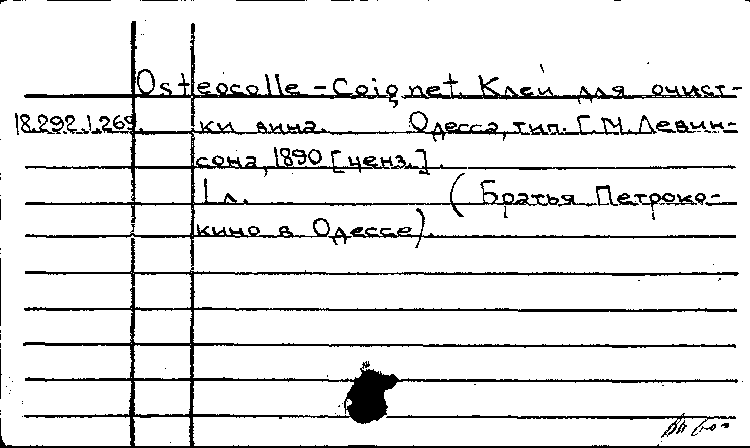 Osteocolle – Coignet. Клей для очист-
18.292.1.269. ки вина. Одесса, тип. Г.М. Левин-
сона, 1890 [ценз.].
1 л. (Братья Петроко-
кино в Одессе).